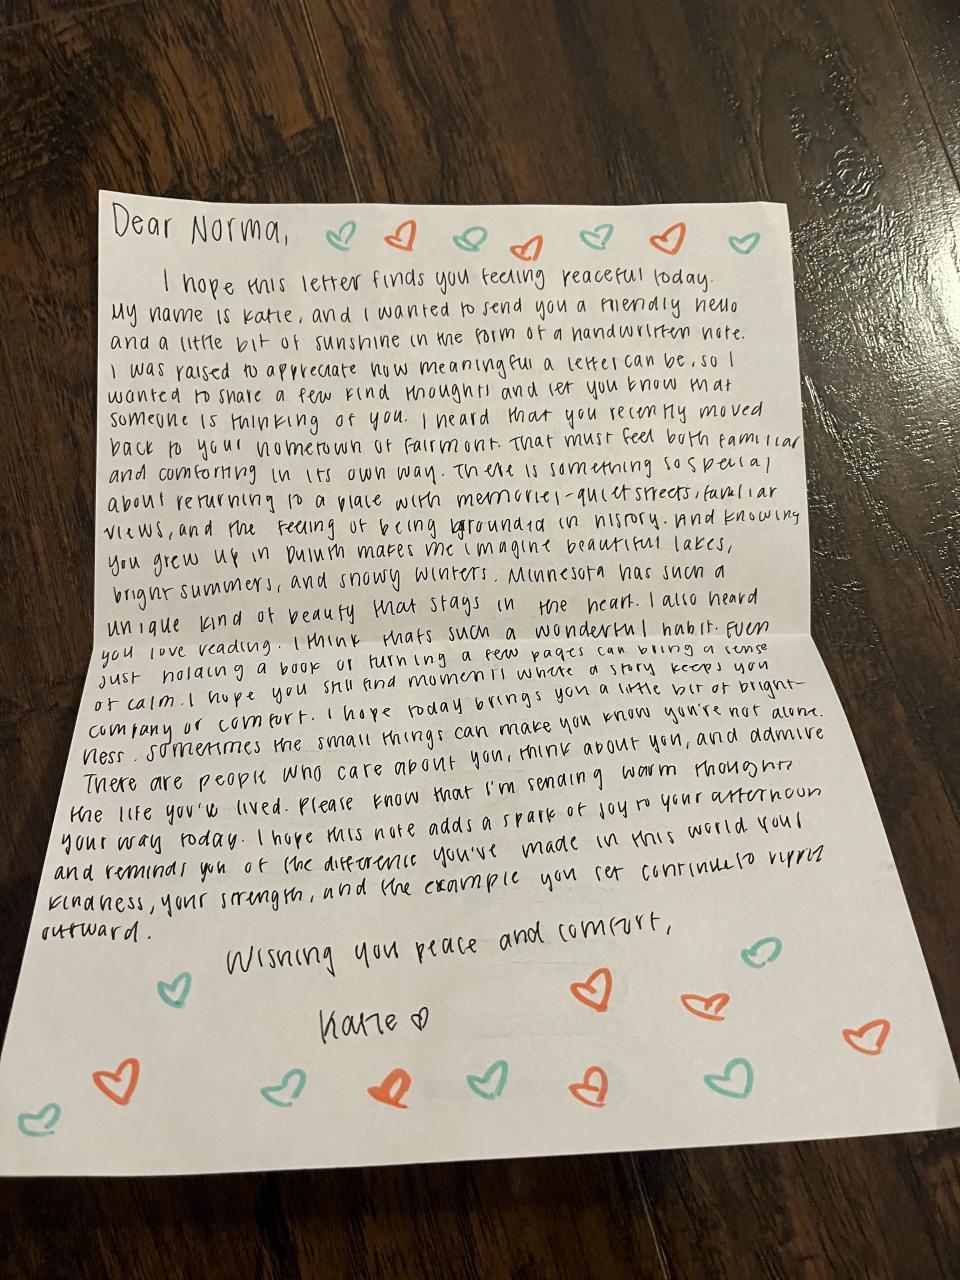 Dear Norma,
I hope this letter finds you feeling peaceful today.
My name is Katie, and I wanted to send you a friendly hello
and a little bit of sunshine in the form of a handwritten note.
I was raised to appreciate how meaningful a letter can be, so I
wanted to share a few kind thoughts and let you know that
someone is thinking of you. I heard that you recently moved
back to your hometown of Fairmont. That must feel both familiar
and comforting in its own way. There is something so special
about returning to a place with memories-quiet streets, familiar
views, and the feeling of being grounded in history. And knowing
you grew up in Duluth makes me imagine beautiful lakes,
bright summers, and snowy winters. Minnesota has such a
unique kind of beauty that stays in the heart. I also heard
you love reading. I think thats such a wonderful habit. Even
just holding a book or turning a few pages can bring a sense
of calm. I hope you still find moments where a story keeps you
company or comfort. I hope today brings you a little bit of bright-
ness. Sometimes the small things can make you know you're not alone.
There are people who care about you, think about you, and admire
the life you've lived. Please know that I'm sending warm thoughts
your way today. I hope this note adds a spark of joy to your afternoon
and reminds you of the difference you've made in this world. Your
kindness, your strength, and the example you set continue to ripple
outward.
Wishing you peace and comfort,
Katie